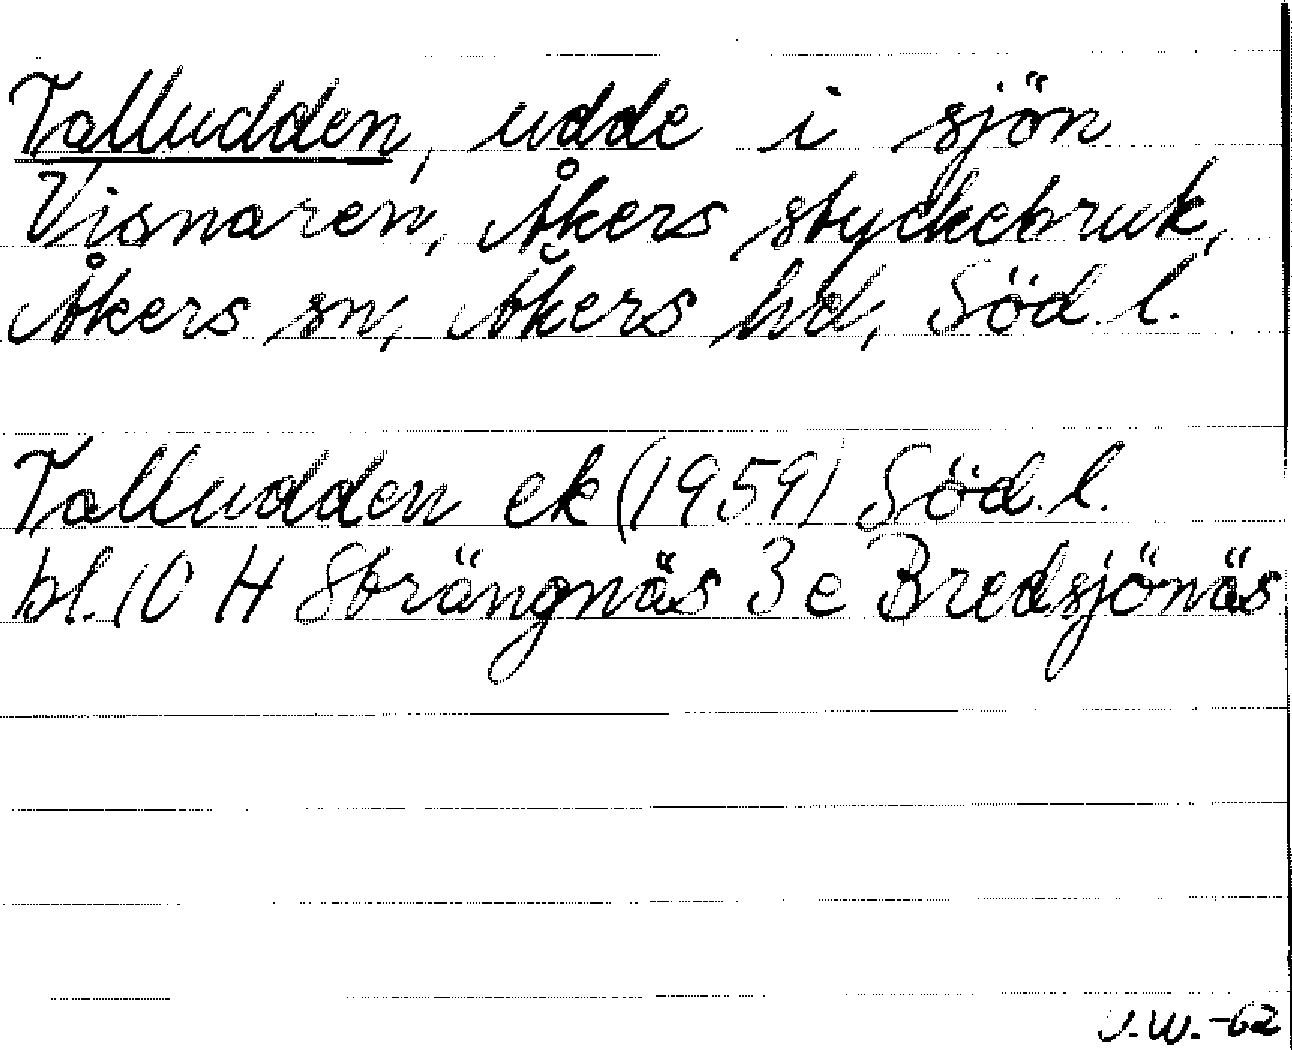 Talludden, udde i sjön
Visnaren, Åkers styckebruk,
Åkers sn, Åkers hd, Söd. l.
Talludden ek (1959) Söd. l.
bl. 10 H Strängnäs 3 e Bredsjönäs
J.W.-62